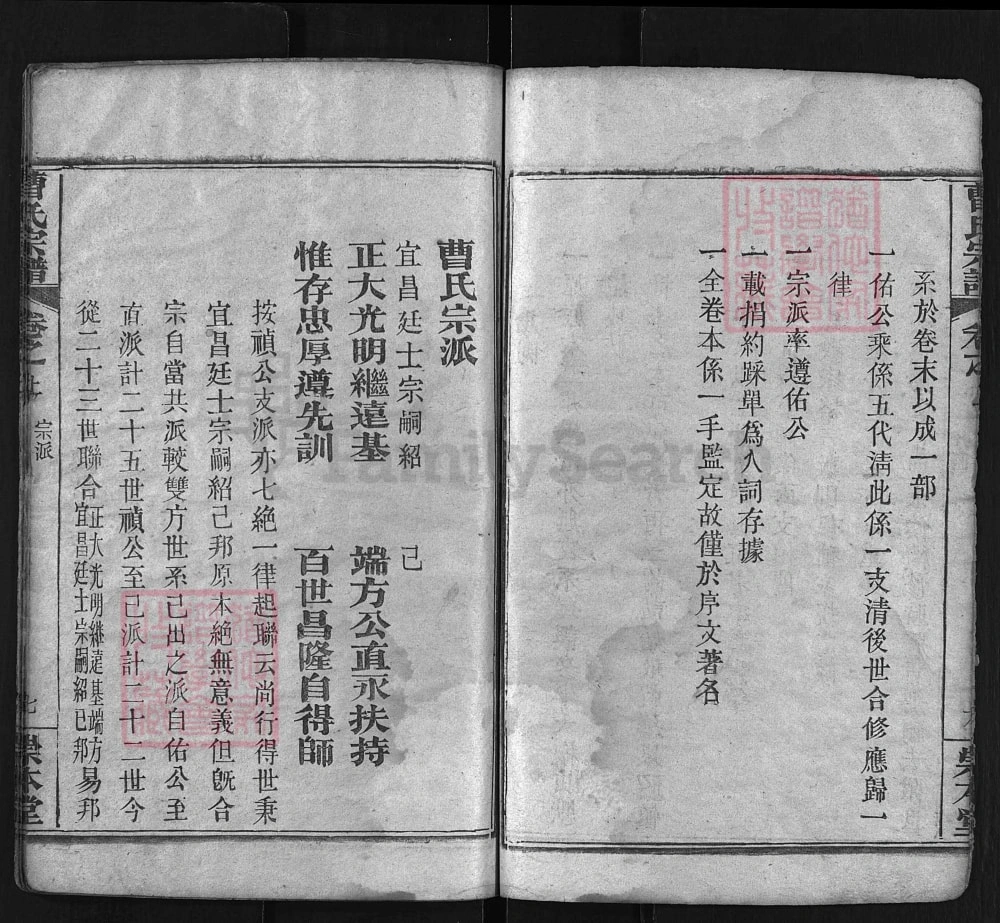 曹氏宗譜
系於卷末以成一部
一佑公乘係五代淸此係一支清後世合修應歸一
律
一宗派率遵佑公
一載捐約踩單爲入詞存據
一全卷本係一手監定故僅於序文著名
崇本堂
曹氏宗派
宜昌廷士宗嗣紹 己
正大光明繼遠基 端方公直永扶持
惟存忠厚遵先訓 百世昌隆自得師
按禎公支派亦七絶一律起聯云尚行得世秉
宜昌廷士宗嗣紹己邦原本絶無意義但旣合
宗自當共派較雙方世系己出之派自佑公至
直派計二十五世禎公至己派計二十二世今
從二十三世聯合正大光明継遠基端方宜昌廷士宗嗣紹己邦易邦
曹氏宗譜
宗派
七
崇本堂
FamilySearch